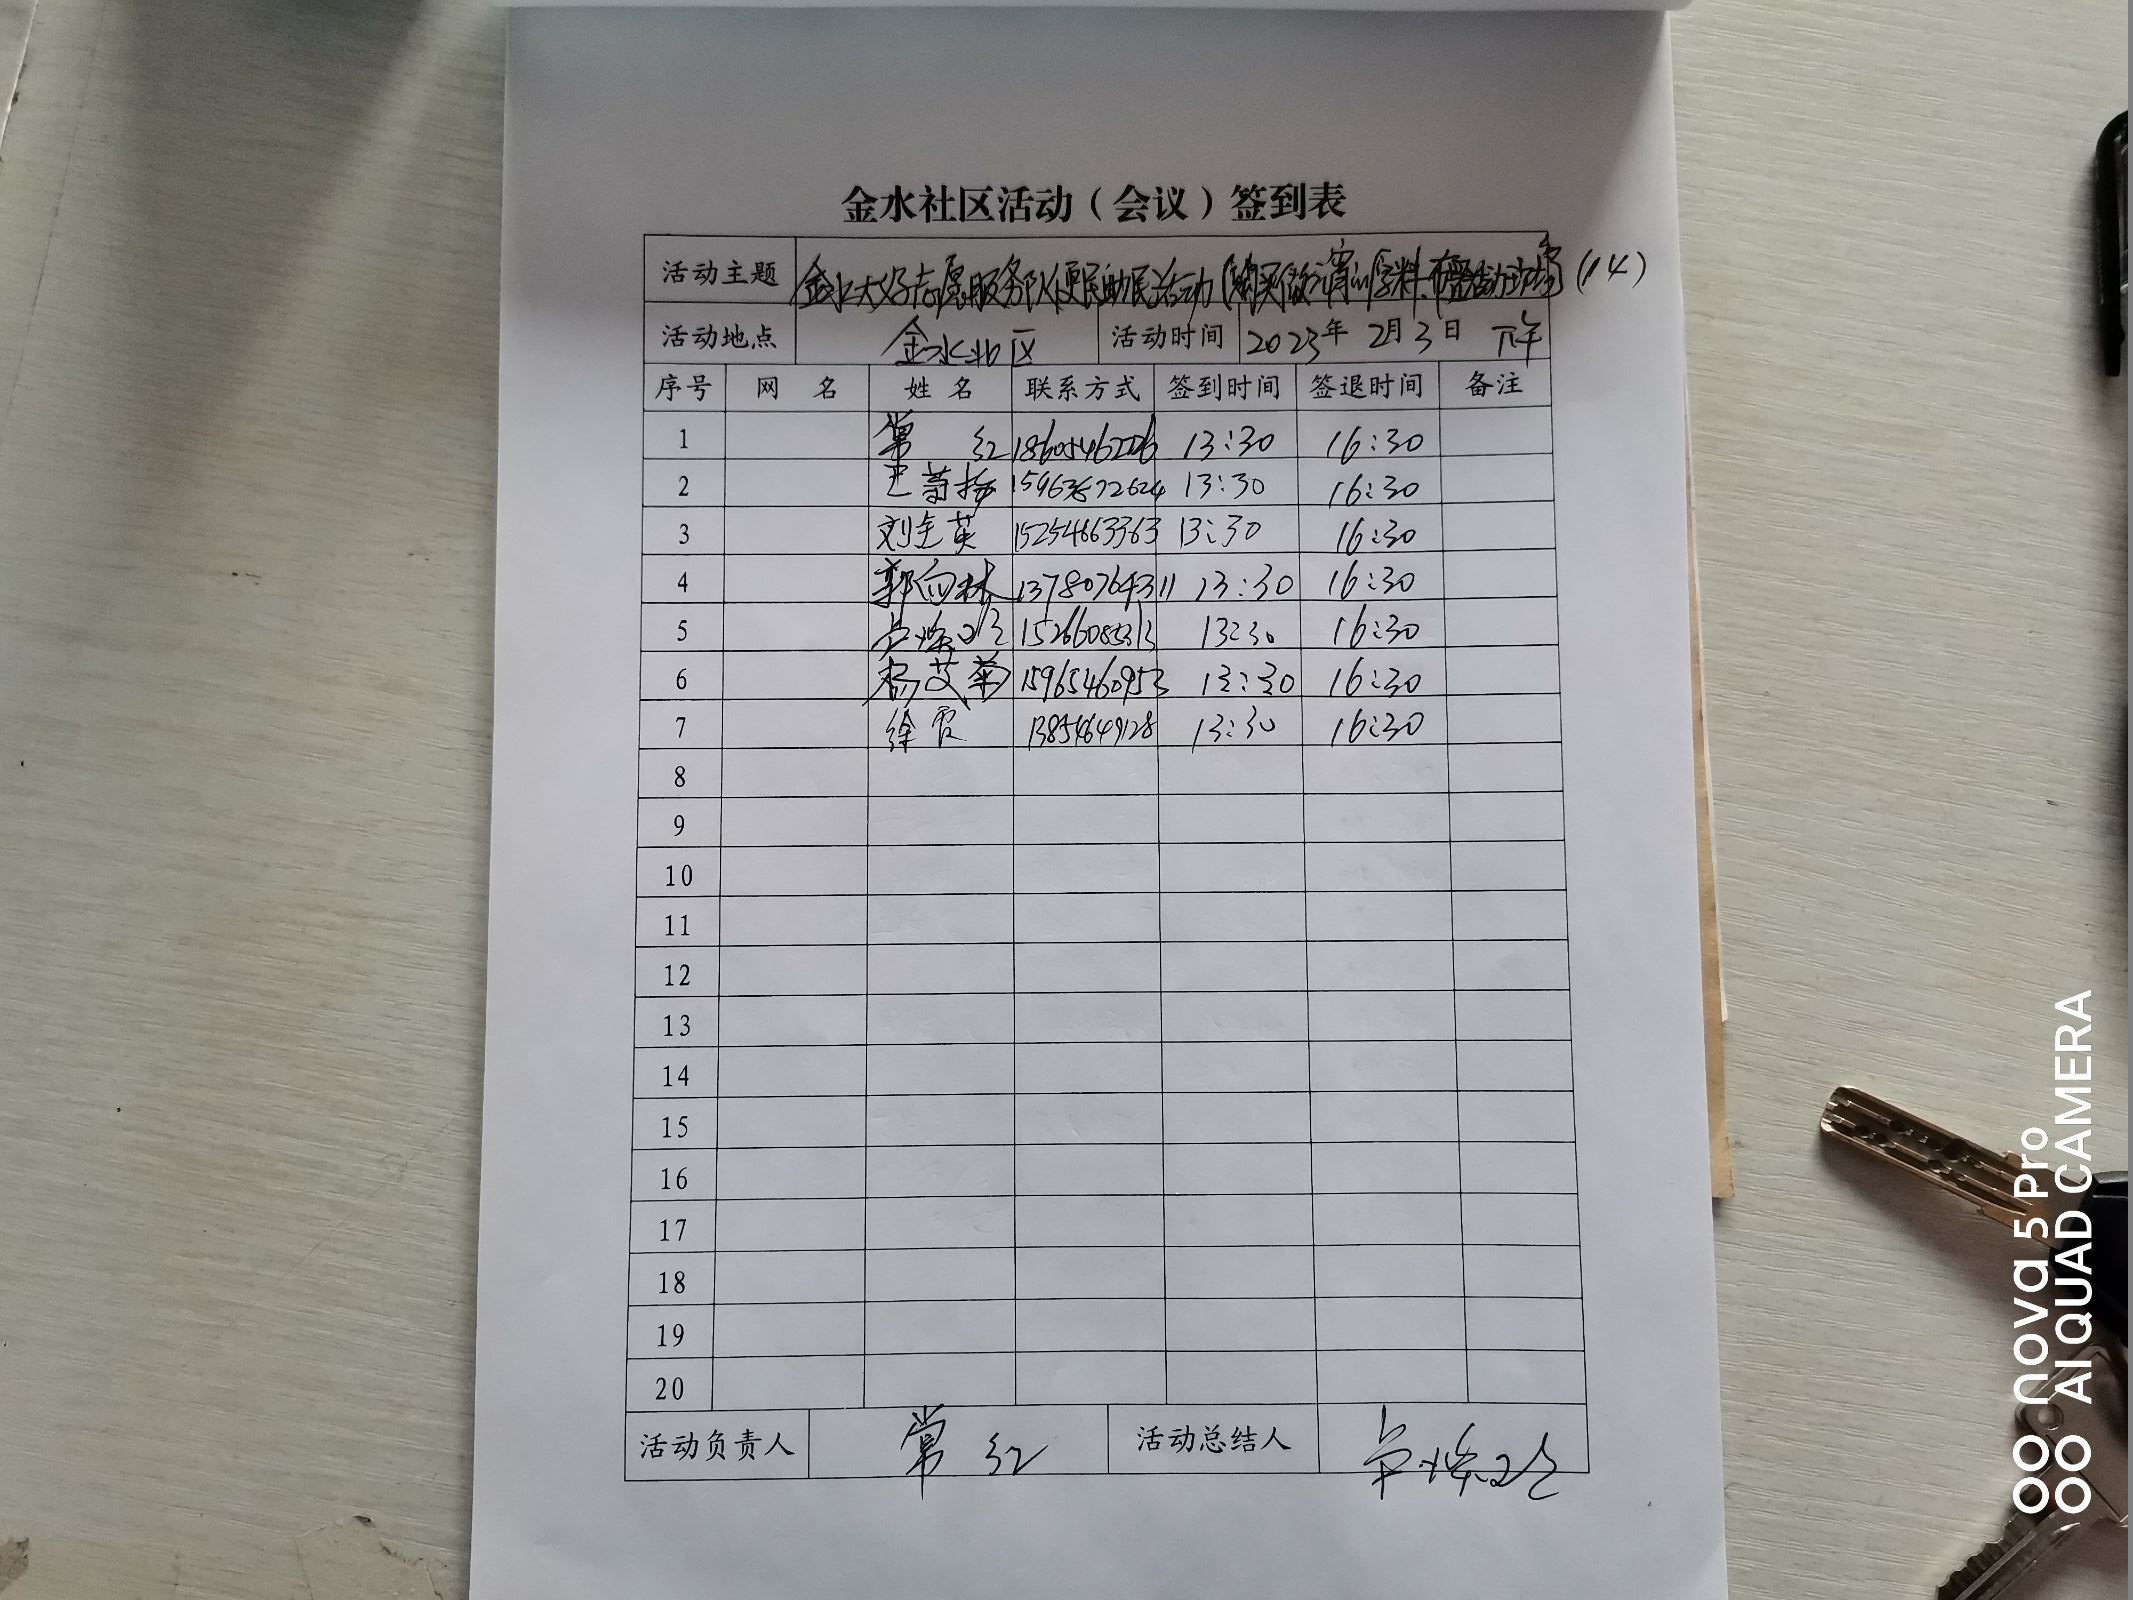 金水社区活动（会议）签到表
活动主题 金水大嫂志愿服务队便民助民活动 (14)
活动地点 金水北区 活动时间 2023年 2月3日 下午
序号 网 名 姓 名 联系方式 签到时间 签退时间 备注
1 常 红 13:30 16:30
2 13:30 16:30
3 刘金英 15254663363 13:30 16:30
4 郭向林 13780764311 13:30 16:30
5 13:30 16:30
6 杨艾菊 15965460953 13:30 16:30
7 徐霞 13854649128 13:30 16:30
8
9
10
11
12
13
14
15
16
17
18
19
20
活动负责人 常 红 活动总结人
nova 5 Pro
AI QUAD CAMERA